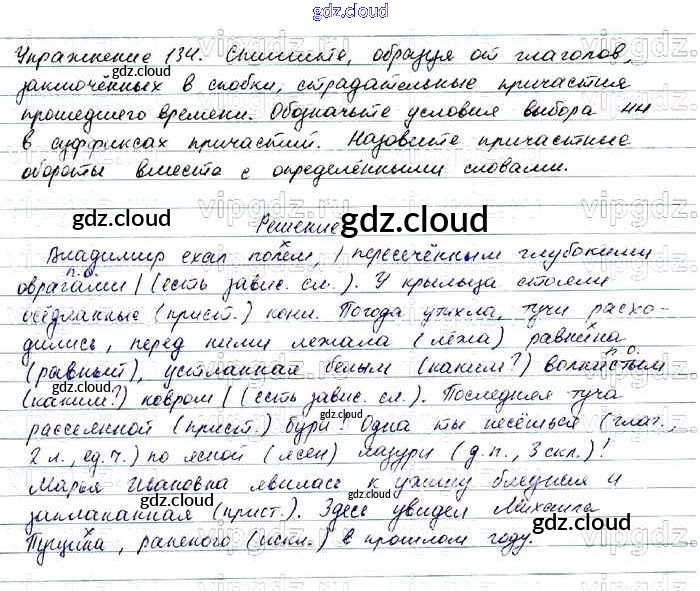 gdz.cloud
Упражнение 134. Спишите, образуя от глаголов,
заключённых в скобки, страдательные причастия
прошедшего времени. Обозначьте условия выбора нн
в суффиксах причастий. Назовите причастные
обороты вместе с определёнными словами.
Решение
Владимир ехал полем, | пересечённым глубокими
п.о.
оврагами | (есть завис. сл.). У крыльца стояли
осёдланные (прист.) кони. Погода утихла, тучи расхо-
дились, перед ними лежала (лёжа) равнина
(равный), устланная белым (каким?) волнистым
п.о.
(каким?) ковром | (есть завис. сл.). Последняя туча
рассеянной (прист.) бури! Одна ты несёшься (глаг.,
2 л., ед.ч.) по ясной (ясен) лазури (д.п., 3 скл.)!
Марья Ивановна явилась к ужину бледная и
заплаканная (прист.). Здесь увидел Михаила
Пущина, раненого (искл.) в прошлом году.
gdz.cloud
gdz.cloud
gdz.cloud
gdz.cloud
gdz.cloud
gdz.cloud
gdz.cloud
gdz.cloud
gdz.cloud
gdz.cloud